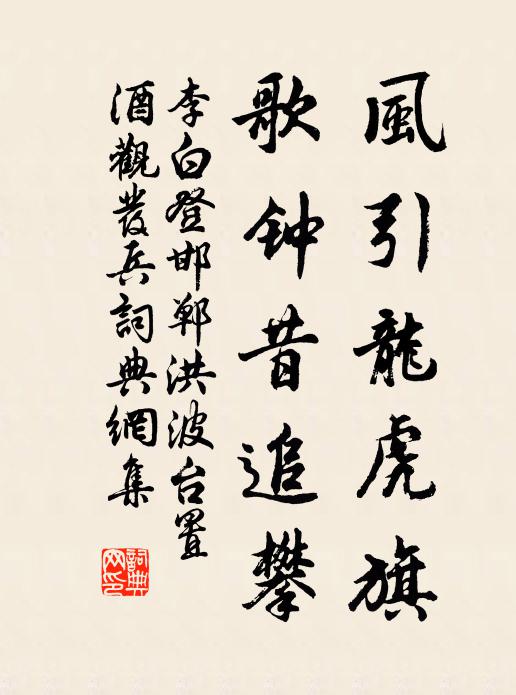 風引龍虎旗
歌钟昔追攀
李白登邯鄲洪波台置
酒觀发兵詞典網集
詞典网印